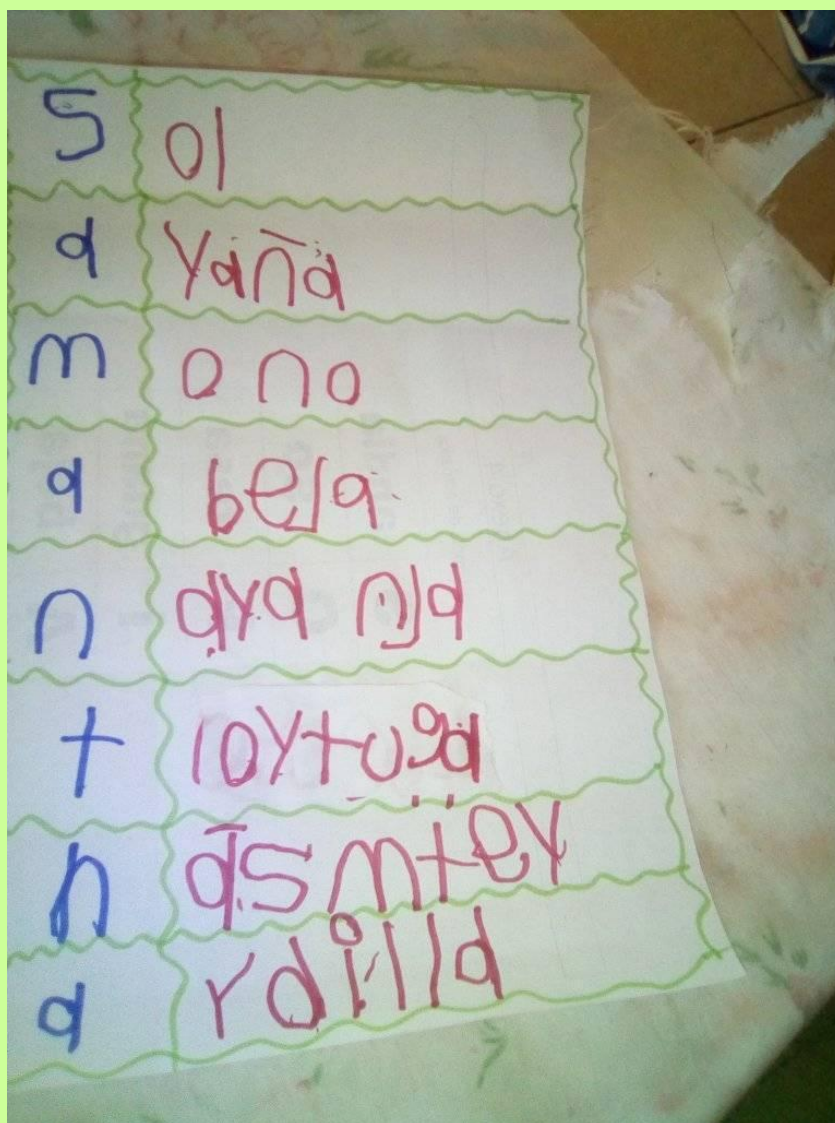 S ol
a raña
m ono
a beja
n ara nja
t ortuga
h asmter
a rdilla